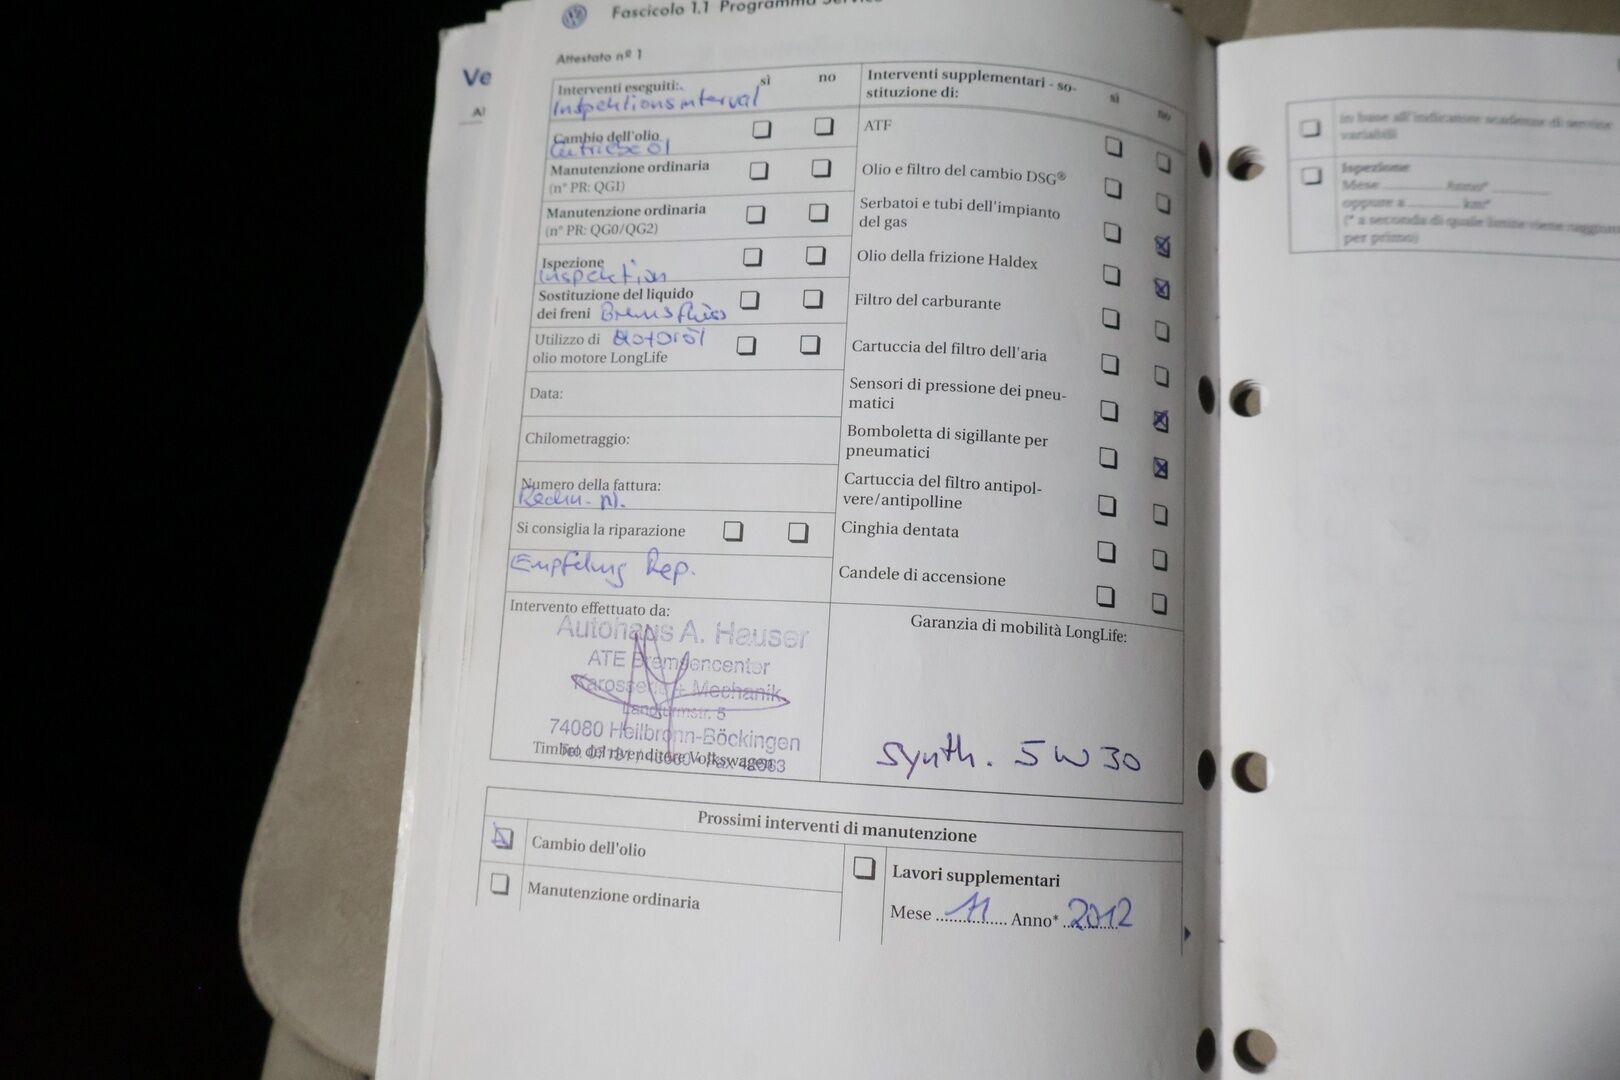 Fascicolo 1.1 Programma Service
Attestato nº 1
Ve
Interventi eseguiti:
sì
no
Inspektionsinterval
Cambio dell'olio
Getriebeöl
Manutenzione ordinaria
(n° PR: QGI)
Manutenzione ordinaria
(n° PR: QG0/QG2)
Ispezione
Inspektion
Sostituzione del liquido
dei freni Bremsflüss
Utilizzo di Motoröl
olio motore LongLife
Data:
Chilometraggio:
Numero della fattura:
Rechn. N.
Si consiglia la riparazione
Empfelung Rep.
Intervento effettuato da:
Autohaus A. Hauser
ATE Bremsencenter
Karosserie + Mechanik
Landturmstr. 5
74080 Heilbronn-Böckingen
Timbro del rivenditore Volkswagen
Interventi supplementari - so-
stituzione di:
sì
no
ATF
Olio e filtro del cambio DSG®
Serbatoi e tubi dell'impianto
del gas
Olio della frizione Haldex
Filtro del carburante
Cartuccia del filtro dell'aria
Sensori di pressione dei pneu-
matici
Bomboletta di sigillante per
pneumatici
Cartuccia del filtro antipol-
vere/antipolline
Cinghia dentata
Candele di accensione
Garanzia di mobilità LongLife:
Synth. 5W30
Prossimi interventi di manutenzione
Cambio dell'olio
Manutenzione ordinaria
Lavori supplementari
Mese 11 Anno* 2012
in base all'indicatore scadenze di service
variabili
Ispezione
Mese Anno*
oppure a km*
(* a seconda di quale limite viene raggiunto
per primo)